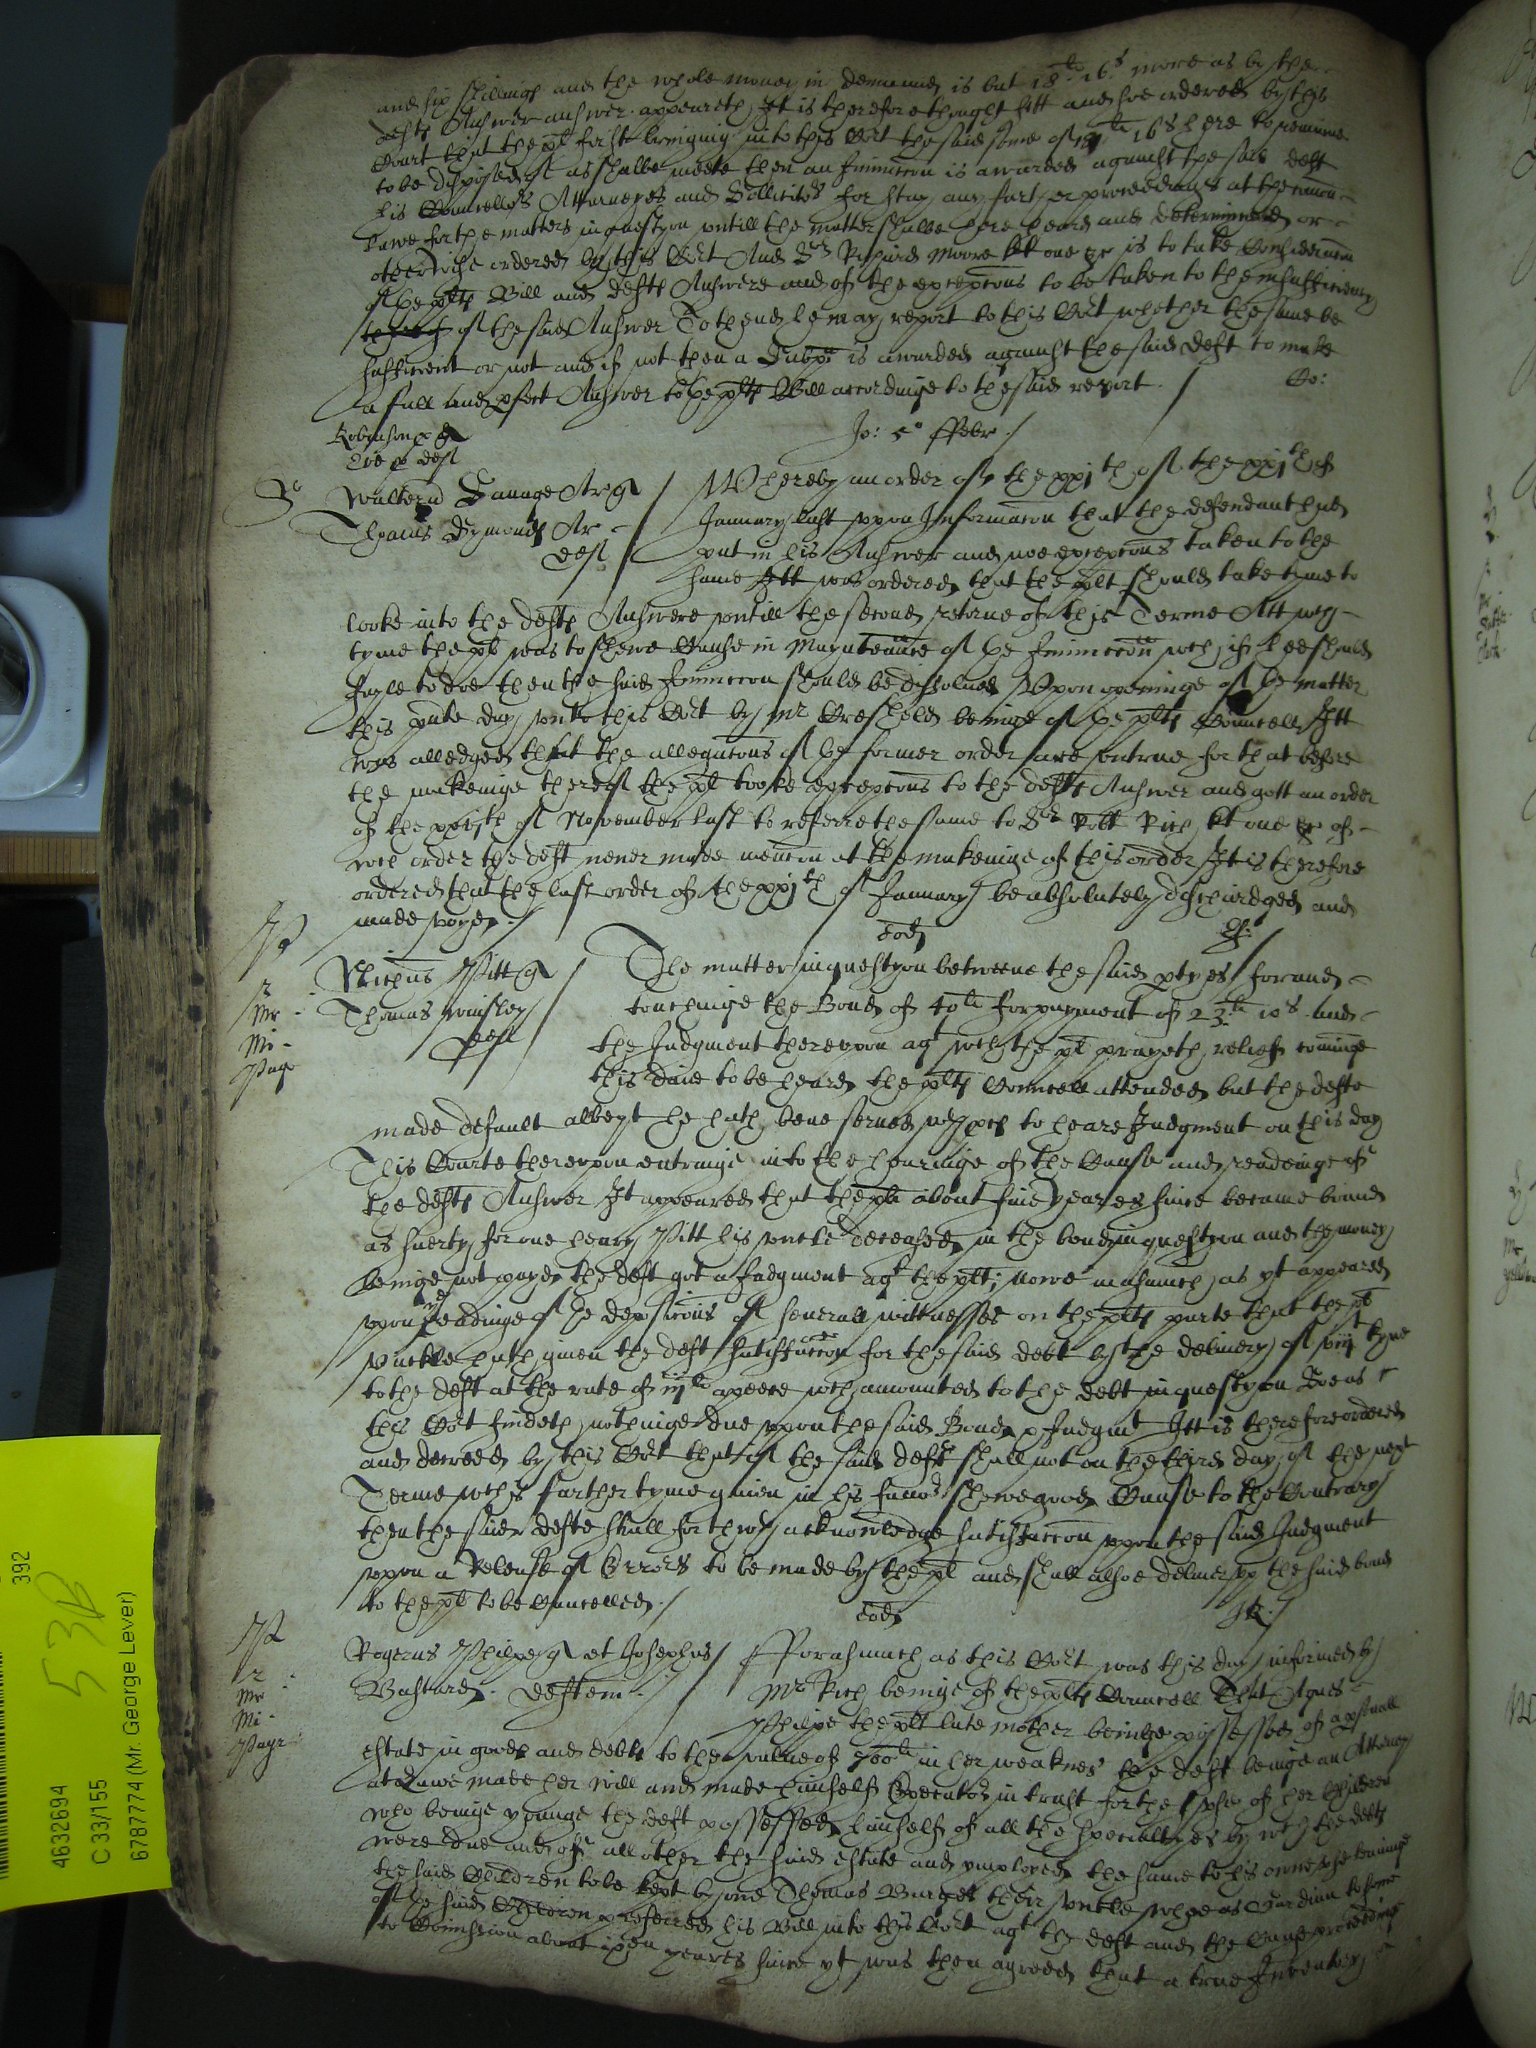 and six shillings and the whole money in demaund is but 18li 16s more as by the
defts Answer answer appeareth It is therefore thought fitt and soe ordered by this
Court that the pl first bringing into this Cort the said some of 18li 16s here to remaine
to be disposed of as shalbe meete then an Iniunccon is awarded against the said deft
his Councellors Attorneyes and Sollicitors for stay any farther proceedings at the comon
Lawe for the matters in question untill the matter shalbe here heard and determined or
otherwise ordered by this Cort And Sr Richard Moore kt one &c is to take Consideracon
of the plts Bill and defts Answere and of the excepcons to be taken to the insufficiency
of the said Answer To thend he may report to this Cort whether the same be
sufficient or not and if not then a Subpa is awarded against the said deft to make
a full and pfect Answer to the plts Bill accordinge to the said report
Jo: 5o ffebr
Walterus Savage Ar q
Thomas Symonds Ar
deft
Whereby an order of the xxjth of the xxjth of
January last uppon Informacon that the defendant had
put in his Answer and noe excepcons taken to the
same Itt was ordered that the plt should take tyme to
looke into the defts Answere untill the second retorne of this Terme Att wch
tyme the pl was to shewe Cause in Mayntenance of the Iniunccon wch if hee should
fayle to doe then the said Iniunccon should be dissolved Upon openinge of the matter
this pnte day unto this Cort by Mr Cresheld beinge of the plts Councell Itt
was alledged that the allegacons of the former order are untrue for that before
the makeinge thereof the pl tooke excepcons to the defts Answer and gott an order
of the of November last to referre the same to Sr Robt Rich kt one &c of
wch order the deft never made mencon at the makeinge of this order It is therefore
ordered that the last order of the xxjth of January be absolutely dischardged and
made voyde
eod
Nichus Pitt q
Thomas
deft
The matter in questyon betweene the said ptyes for and
touchinge the Bond of 40li for payment of 23li 10s and
the Judgment thereupon agt wch the pl prayeth releif cominge
this daie to be heard the plts Councell attended but the defte
made default albeyt he hath bene served wth pces to heare Judgment on this day
This Courte thereupon entringe into the hearinge of the Cause and readeinge of
the defts Answer It appeared that the pl about five yeares since became bound
as suerty for one henry Pitt his uncle deceased in the bond in questyon and the money
beinge not payde the deft got a Judgment agt the plt; Nowe inasmuch as yt appeared
upon readinge of the deposicons of severall wittnesses on the plts parte that the pl
Unckle hath given the deft satisfaccon for the said debt by the delivery of kyne
to the deft at the rate of iijli apeece wch amounted to the debt in questyon Soe as
this Cort findeth nothinge due uppon the said Bond & Judgmt Itt is therefore ordered
and decreed by this Cort that if the said deft shall not on the third day of the next
Terme wch is farther tyme given in his favor shewe good Cause to the Contrary
then the said defte shall forthwth acknowledge satisfaccon uppon the said Judgment
uppon a Release of Errors to be made by the pl and shall alsoe deliver up the said bond
to the pl to be Cancelled
eod
Rogerus Philpe q et Josephus
Bastard deftem
Pr
Mr
Mi
Payr
fforasmuch as this Cort was this day informed by
Mr Rich beinge of the plts Councell That Agnes
Philpe the plt late mother beinge possessed of a psonall
estate in goods and debts to the value of 700li in her weaknes the deft beinge an Attorny
at Lawe made her will and made himself Executor in trust for the use of her Children
who beinge younge the deft possessed himself of all the specialtyes by wch the debts
were due and of all other the said estate and ymployed the same to his owne use leavinge
the said Children to be kept by one Thomas Burges their uncle whoe as Gardian to some
of the said Children preferred his Bill into this Cort agt the deft and the Cause proceedinge
to Comission about yeares since yt was then agreed that a true Inventory
392
53B
4632694
C 33/155
67877774 (Mr. George Lever)